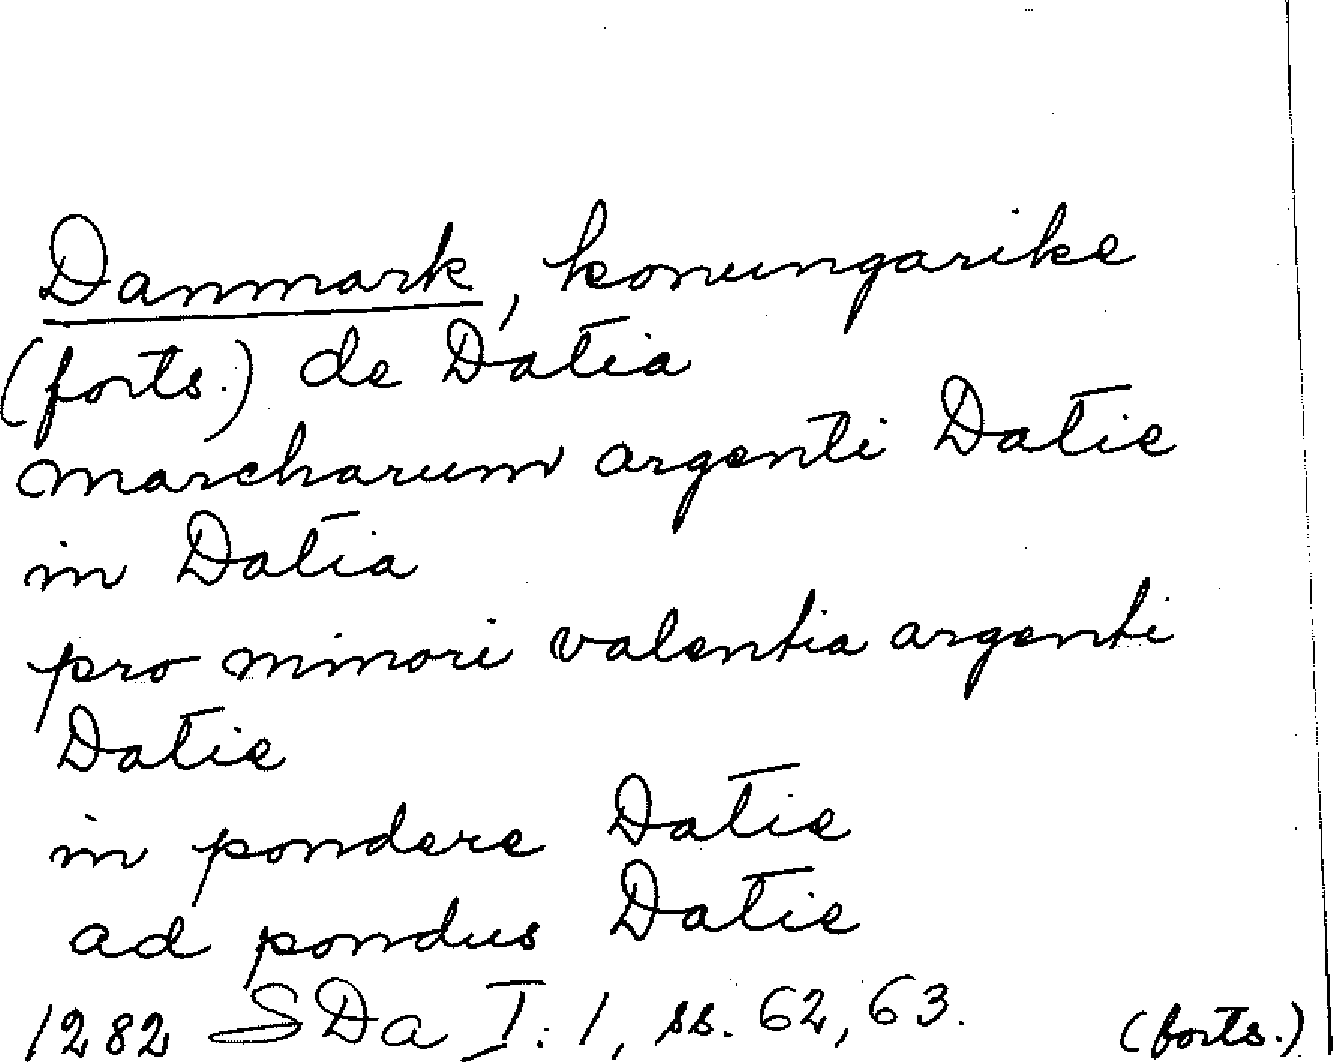 Danmark, konungarike
(forts.) de Datia
marcharum argenti Datie
in Datia
pro minori valentia argenti
Datie
in pondere Datie
ad pondus Datie
1282 SDa I:1, ss. 62, 63. (forts.)